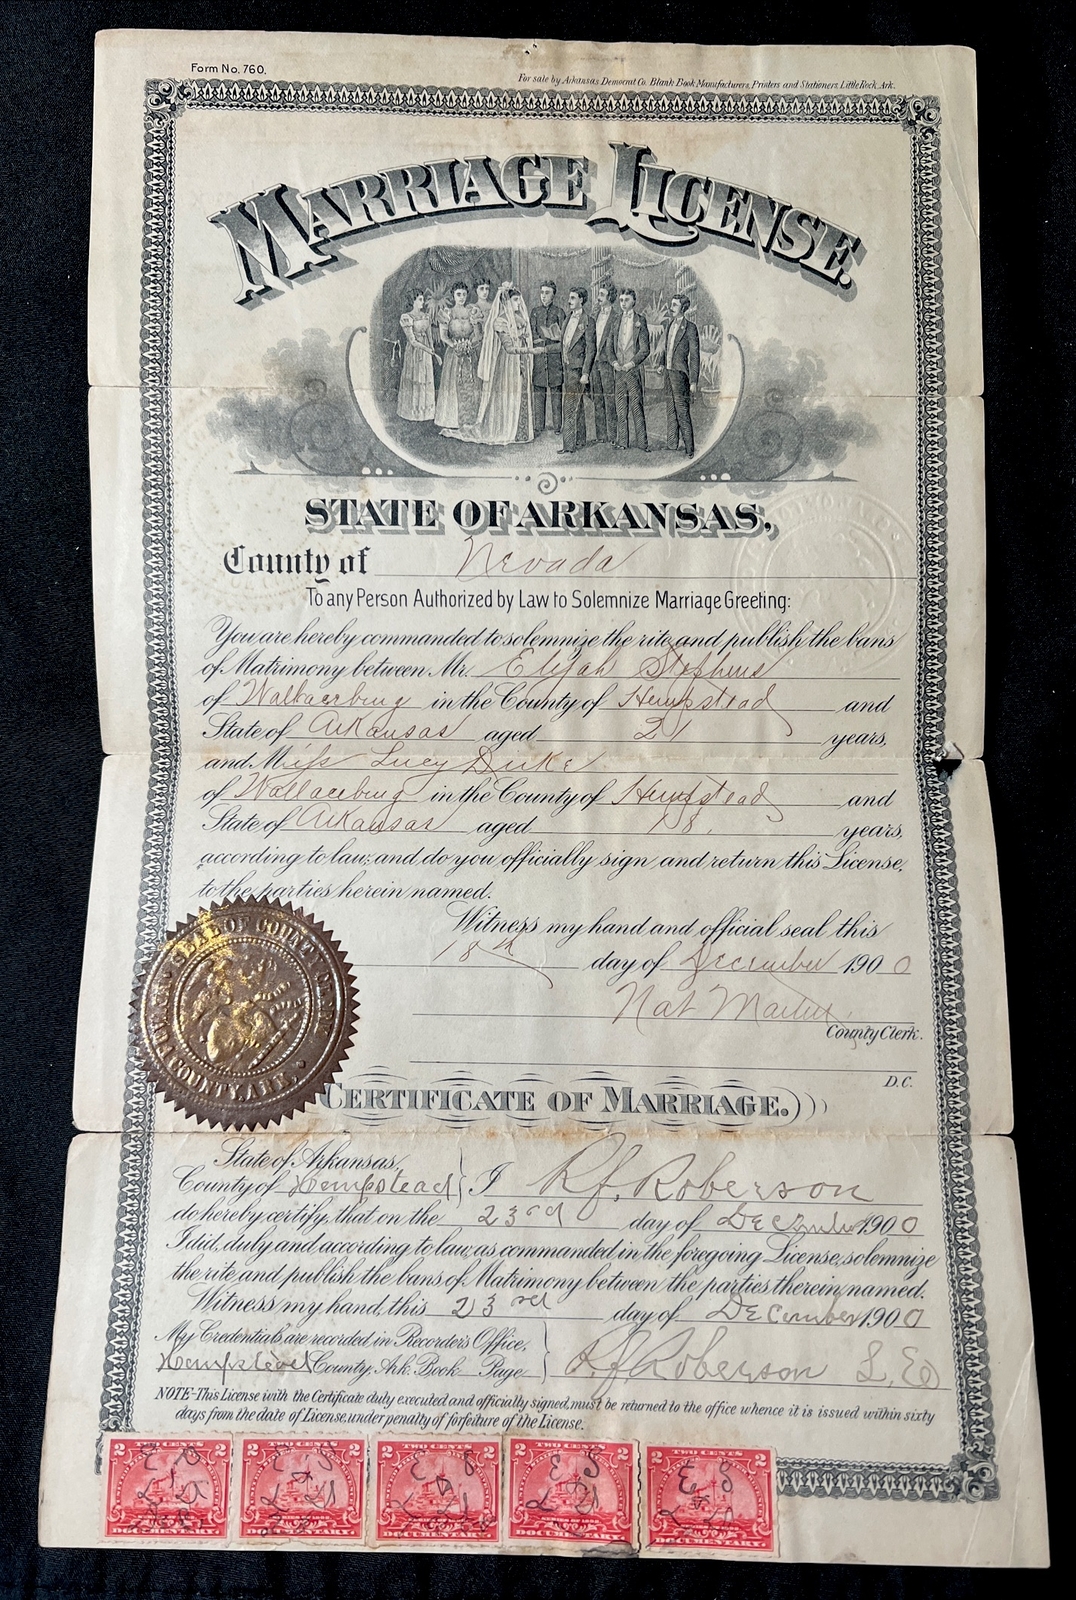 Form No. 760.
For sale by Arkansas Democrat Co. Blank Book Manufacturers, Printers and Stationers, Little Rock, Ark.
MARRIAGE LICENSE.
STATE OF ARKANSAS,
County of Nevada
To any Person Authorized by Law to Solemnize Marriage Greeting:
You are hereby commanded to solemnize the rite and publish the bans
of Matrimony between Mr. Elijah Stephens
of Wallaceburg in the County of Hempstead and
State of Arkansas aged 21 years,
and Miss Lucy Duke
of Wallaceburg in the County of Hempstead and
State of Arkansas aged 18. years,
according to law; and do you officially sign and return this License,
to the parties herein named.
Witness my hand and official seal this
18th day of December 1900
Nat Martin
County Clerk.
D.C.
SEAL OF COUNTY
COUNTY, ARK.
CERTIFICATE OF MARRIAGE.
State of Arkansas,
County of Hempstead } I R.J. Roberson
do hereby certify, that on the 23rd day of December 1900
I did, duly and according to law, as commanded in the foregoing License, solemnize
the rite and publish the bans of Matrimony between the parties therein named.
Witness my hand, this 23rd day of December 1900
My Credentials are recorded in Recorder's Office,
Hempstead County, Ark. Book Page } R.J. Roberson L. E.
NOTE-This License with the Certificate duly executed and officially signed, must be returned to the office whence it is issued within sixty
days from the date of License, under penalty of forfeiture of the License.
2 TWO CENTS 2 2 TWO CENTS 2 2 TWO CENTS 2 2 TWO CENTS 2 2 TWO CENTS 2
DOCUMENTARY. DOCUMENTARY. DOCUMENTARY. DOCUMENTARY. DOCUMENTARY.